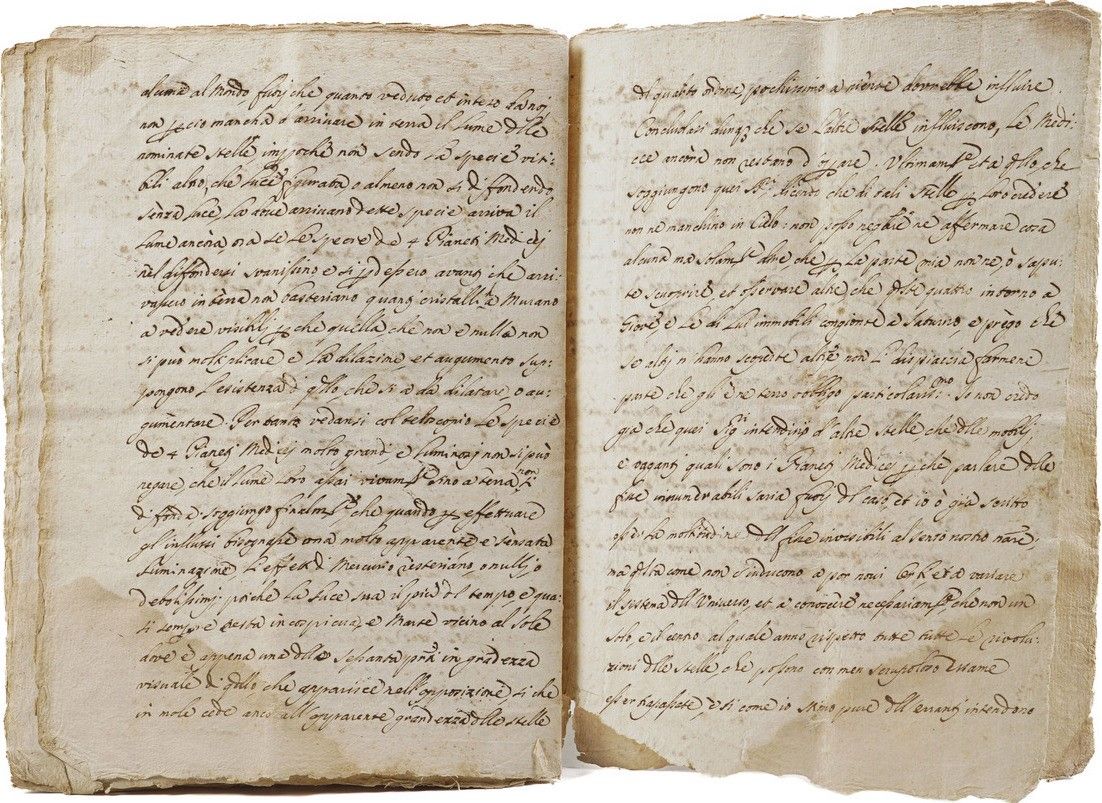 al cuna al Mondo fuorj che quanto veduto et inteso da noj
non p cio mancha o arrivare in terra il lume dlle
nominate stelle inpoche non sendo la specie visi-
bili altro, che luce figurata o almeno non si difondendo
senza luce la doue arriuano dette specie arriva il
lume ancora, ora se le specie de 4 Pianetj Medicej
nel difondersi suanissino e si pdessero auantj che arri-
vassero in terra non basteriano quantj cristallj à Murano
a vedere visibilj p che quella che non è nulla non
si può moltiplicare e la dilazine, et augumento sup-
pongono l'esistenza d qllo che si a da dilatare, o au-
gumentare. Per tanto vedansi col telescopio le specie
de 4 Pianetj Medicej molto grandj e luminosj non si può
negare, che il lume loro assai viuamte sino a terra non si
difonda: soggiungo finalmte che quando p effettuare
gl'influssi bisognasse una molto apparente e sensata
luminazione l'effettj di Mercurio resteriano, o nullj o
debolissimj poiche la luce sua il più dl tempo, e qua-
si sempre resta incospicua, e Marte vicino al sole
doue è appena una dlle sessanta ptj in grandezza
visuale di qllo che apparisce nell'opposizione, si che
in mole cede anco all'apparente grandezza dlle stelle
dl quarto ordine, pochissimo a niente dovrebbe influire.
Concludasi dunq che se l'altre stelle influiscono, le Medi-
cee ancora non restano d oprare. Ultimamte sta qllo, che
soggiungono quei Srj dicendo che di tali stelle p loro credere
non ne manchino in Cielo: non posso negare ne affermare cosa
alcuna ma solamte dire, che p la parte mia non ne ò sapu-
te scuoprire, et osservare altre, che qste quattro intorno a
Giove, e le di lui immobili congionte a Saturno, e prego che
se altrj n hanno scoperte altre non l dispiaccia farmene
parte che gli è ne terrò obbligo particolarismo. Io non credo
già che quei Sigj intendino d'altre stelle che dlle mobilj
e vagantj quali sono i Pianetj Medicej p che parlare dlle
fisse innumerabili saria fuorj dl caso, et io ò già scritto
esser la moltitudine dlle fisse invisibili al senso nostro mare,
ma qlla come non c'inducono a por novi Orbi et a variare
il sistema dll Universo, et a conoscere necessariamte, che non un
solo, e il centro al quale anno rispetto tutte tutte le rivolu-
zioni dlle stelle che possono con men scrupoloso essame
esser trapassate, e si come io stimo pure dll errantj intendono